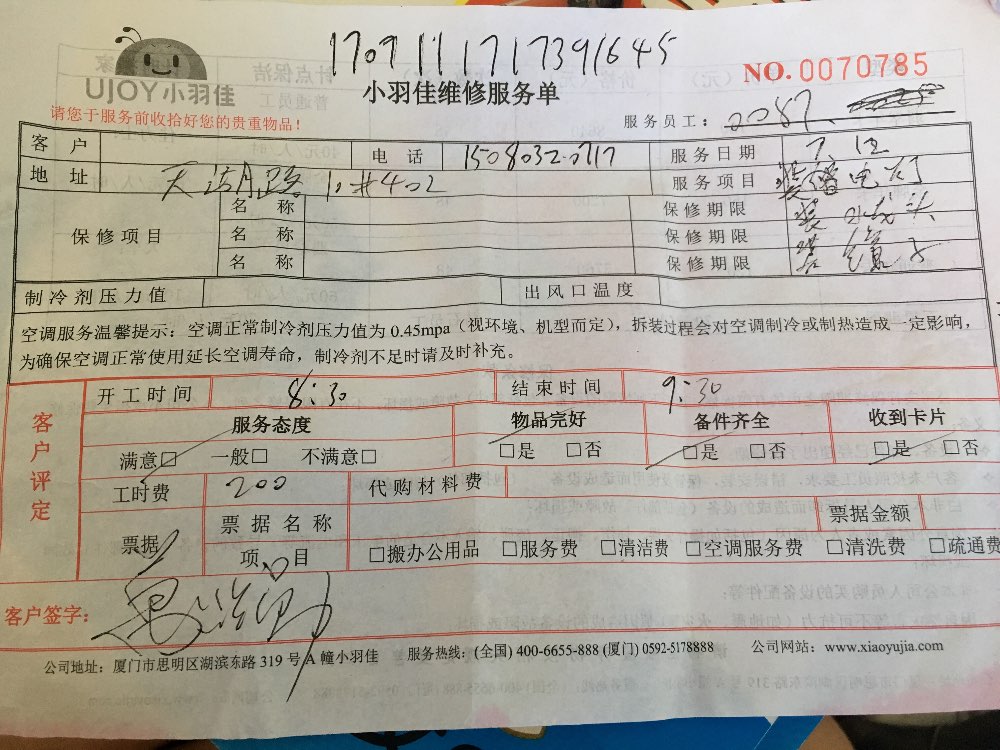 1707111717391645
UJOY小羽佳
NO.0070785
小羽佳维修服务单
请您于服务前收拾好您的贵重物品!
服务员工: 2087
客 户 电 话 15080320717 服务日期 7.12
地 址 10#402 服务项目 装 电灯
保修项目
名 称 保修期限 装 水龙头
名 称 保修期限
名 称 保修期限
制冷剂压力值 出风口温度
空调服务温馨提示:空调正常制冷剂压力值为 0.45mpa(视环境、机型而定),拆装过程会对空调制冷或制热造成一定影响,
为确保空调正常使用延长空调寿命,制冷剂不足时请及时补充。
客户评定
开工时间 8:30 结束时间 9:30
服务态度 物品完好 备件齐全 收到卡片
满意□ 一般□ 不满意□ □是 □否 □是 □否 □是 □否
工时费 200 代购材料费
票据 票据名称 票据金额
项 目 □搬办公用品 □服务费 □清洁费 □空调服务费 □清洗费 □疏通费
客户签字:
公司地址:厦门市思明区湖滨东路 319 号 A 幢小羽佳 服务热线:(全国) 400-6655-888 (厦门) 0592-5178888 公司网站:www.xiaoyujia.com